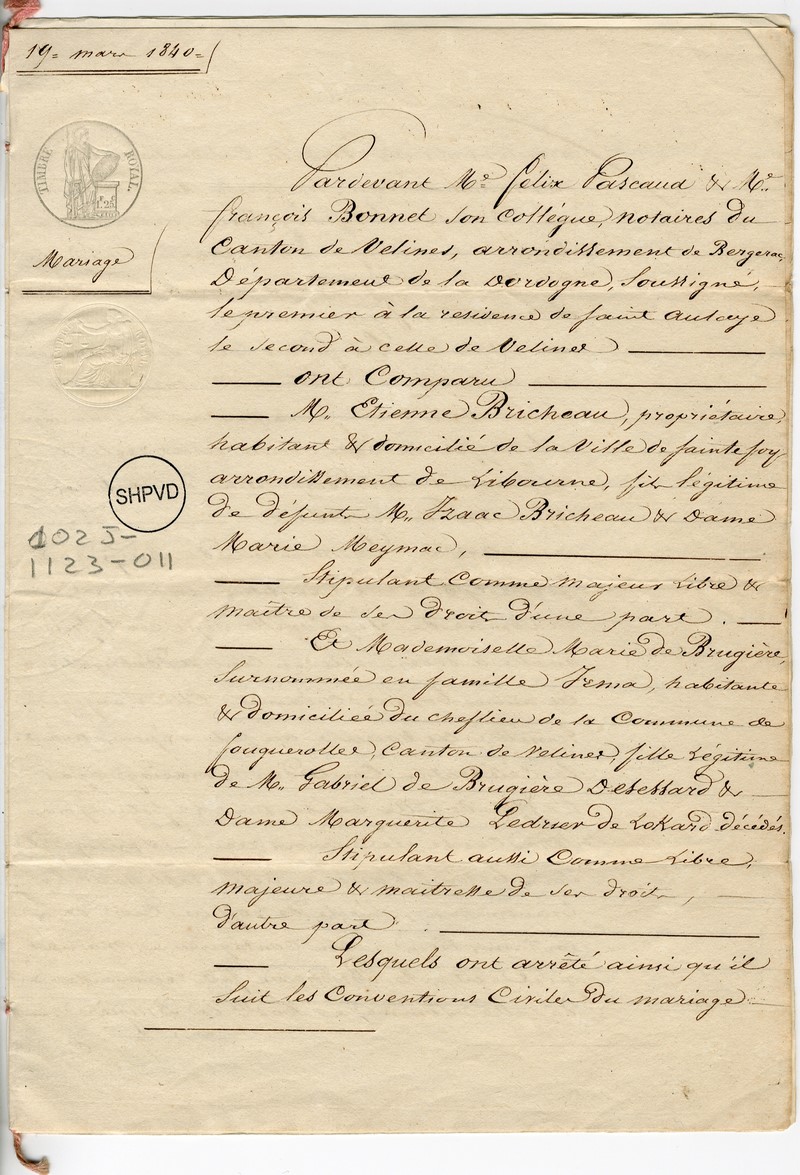 19= mars 1840=
TIMBRE ROYAL
Mariage
SHPVD
102J-
1123-011
Pardevant Me. félix Pascaud & Me.
françois Bonnet son collégue, notaires du
Canton de Velines, arrondissement de Bergerac,
Département de la Dordogne, Soussigné,
le premier à la residence de saint Aulaye
le second à celle de Velines
ont Comparu
M. Etienne Bricheau, propriétaire,
habitant & domicilié de la Ville de sainte foy
arrondissement de Libourne, fils légitime
de défunts M. Izaac Bricheau & Dame
Marie Meymac,
Stipulant Comme majeur Libre &
maître de ses droits d'une part.
Et Mademoiselle Marie de Brugière,
Surnommée en famille Irma, habitante
& domiciliée du cheflieu de la Commune de
fouguerolles, Canton de Velines, fille Légitime
de M. Gabriel de Brugière Desessard &
Dame Marguerite Ledrier de Lokard décédés.
Stipulant aussi Comme Libre,
majeure & maitresse de ses droits,
d'autre part.
Lesquels ont arrêté ainsi qu'il
Suit les Conventions Civiles du mariage